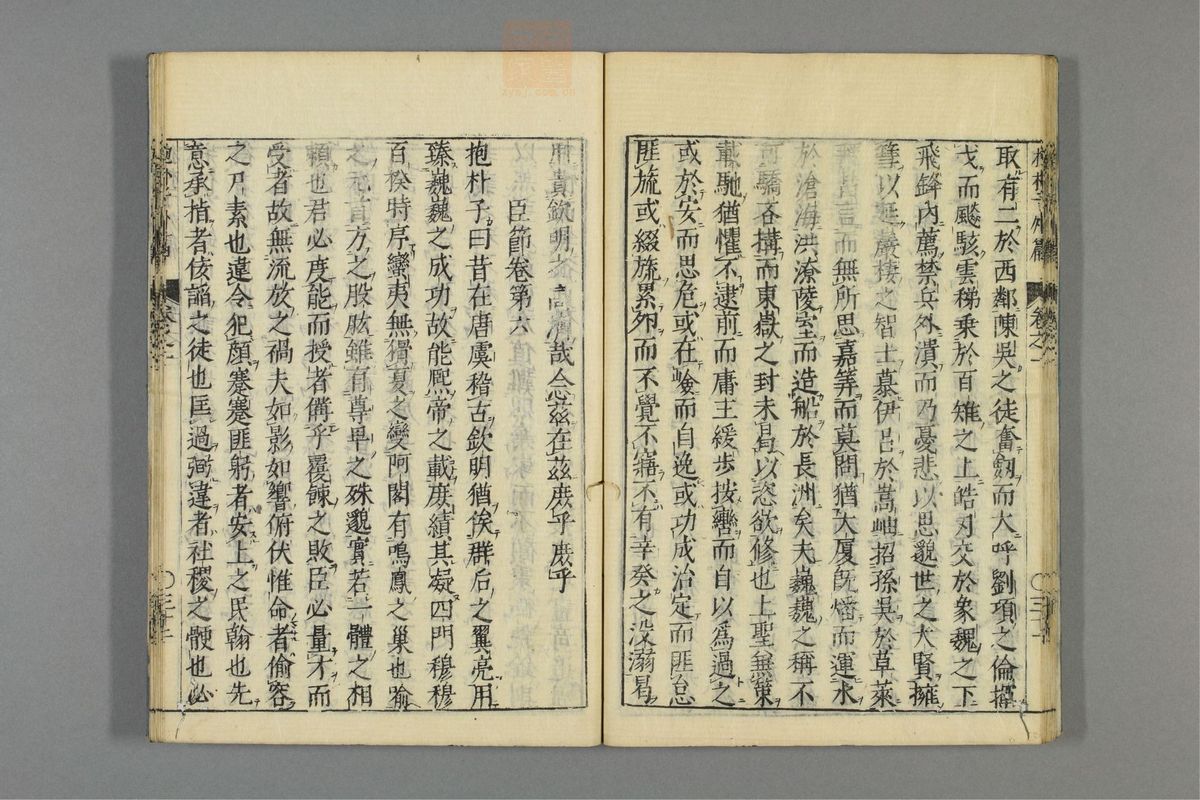 取有二於西鄰陳吳之徒奮劔而大呼劉項之倫揮
戈而飈駭雲梯乗於百雉之上皓刄交於象魏之下
飛鋒内薦禁兵外潰而乃憂悲以思邈世之大賢擁
篲以延巖棲之智士慕伊呂於嵩岫招孫吳於草萊
昌言而無所思嘉筭而莫問猶大厦旣燔而運水
於滄海洪潦凌室而造船於長洲矣夫巍巍之稱不
可驕吝搆而東嶽之封未易以恣欲修也上聖無策
載馳猶懼不逮前而庸王緩歩按轡而自以爲過之
或於安而思危或在嶮而自逸或功成治定而匪怠
匪旒或綴旒累夘而不覺不寤不有辛癸之没溺曷
用貴欽明之高濟哉念茲在茲庶乎庶乎
臣節卷第六
抱朴子曰昔在唐虞稽古欽明猶俟群后之翼亮用
臻巍巍之成功故能熈帝之載庶績其凝四門穆穆
百揆時序蠻夷無猾夏之變阿閣有鳴鳳之巢也喻
之元首方之股肱雖有尊卑之殊邈實若一體之相
賴也君必度能而授者備乎覆餗之敗臣必量才而
受者故無流放之禍夫如影如響俯伏惟命者偷容
之尸素也違令犯顔蹇蹇匪躬者安上之民翰也先
意承指者佞諂之徒也匡過弼違者社稷之骾也必